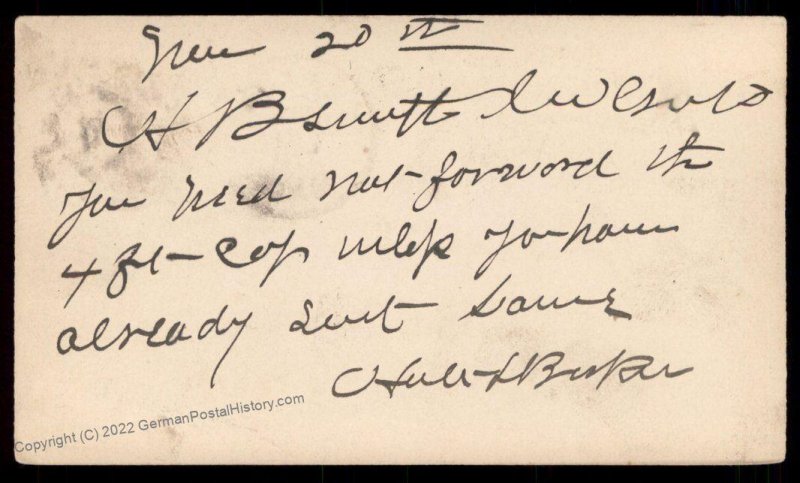 20th
H B Smith
You need not forward the
4 ft Cop unless you have
already sent same
Copyright (C) 2022 GermanPostalHistory.com